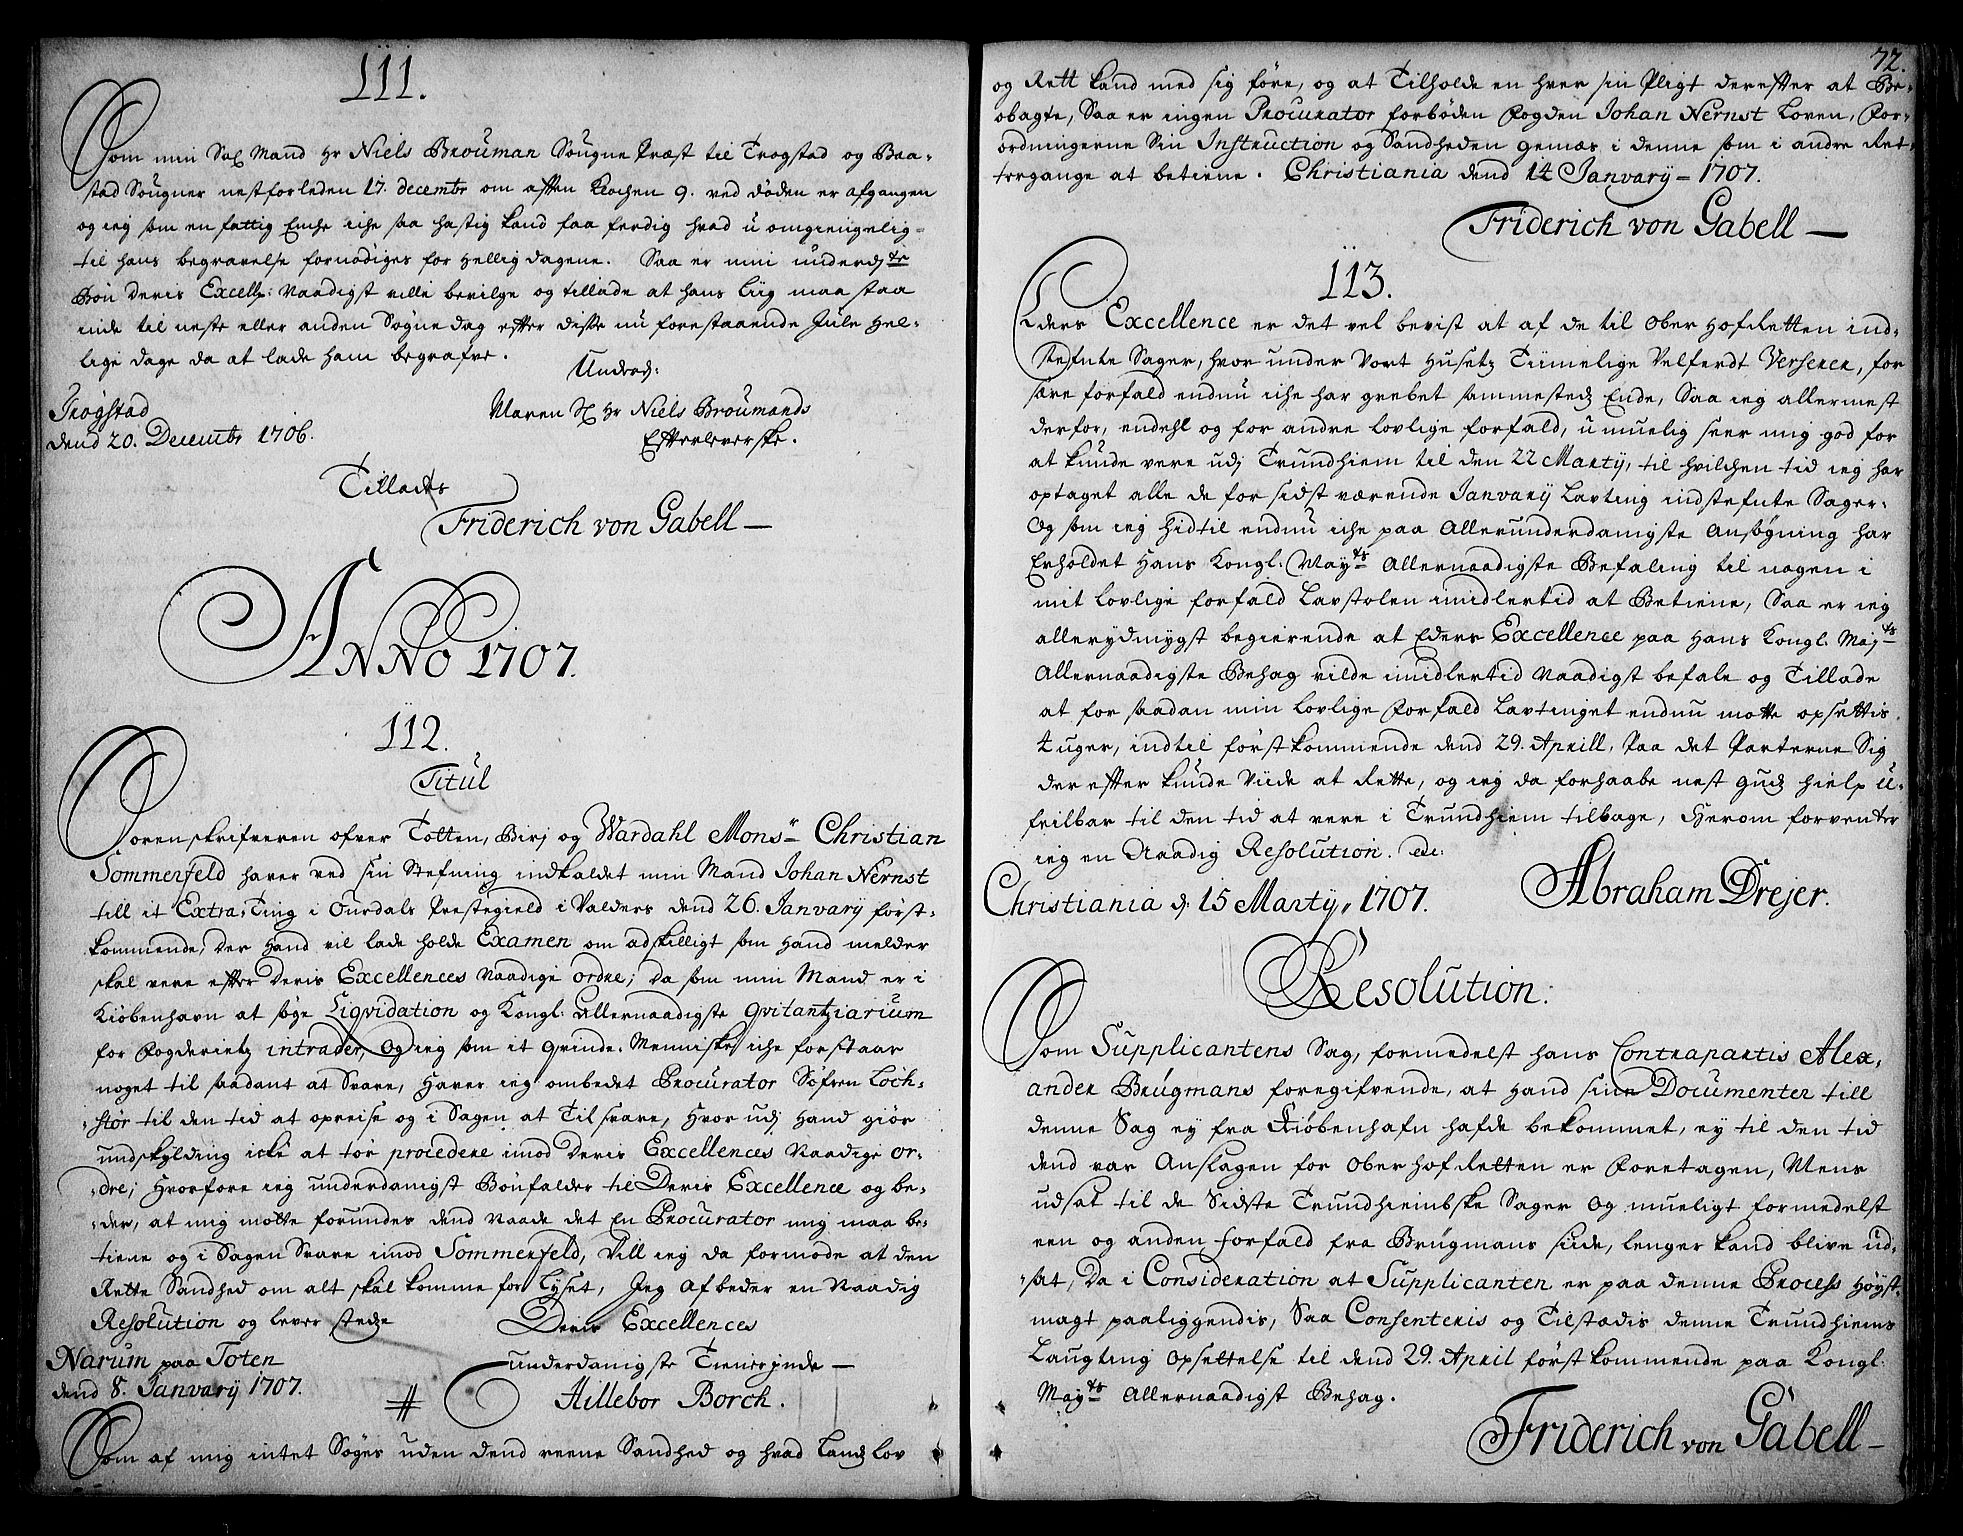 111.
Som min Sal Mand Hr Niels Brouman Sougne Præst til Trogstad og Baa-
stad Sougner nestforleden 17. decembr om afften Klochen 9. ved døden er afgangen
og ieg som en fattig Enche iche saa hastig kand faa ferdig hvad u omgiengelig-
til hans begravelse fornødiges for Hellig dagene. Saa er min underd: te
Bøn Deris Excell: Naadigst ville bevilge og tillade at hans Liig maa staa
inde til neste eller anden Søgne dag efter disse nu forestaaende Jule Hel-
lige dage da at lade ham begrafve.
Underd:
Trøgstad
dend 20. Decembr 1706.
Maren Sl Hr Niels Broumands
Efterleverske.
Tillades
Friderich von Gabell
ANNO 1707.
112.
Titul
Sorenskrifveren ofver Totten, Birj og Wardahl Monsr Christian
Sommerfeld haver ved sin Stefning indkaldet min Mand Johan Nernst
till it Extra-Ting i Ourdals Prestegield i Valders dend 26. Janvarij først-
kommende, Der Hand vil lade holde Examen om adskilligt som Hand melder
skal vere efter Deris Excellences Naadige Ordre; Da som min Mand er i
Kiøbenhavn at søge Liqvidation og Kongl: Allernaadigste Qvitantziarium
for Fogderietz intrader, Og ieg som it Qvinde-Menniske iche forstaar
noget til saadant at Svare, Haver ieg ombedet Procurator Søfren Loch-
stør til den tid at opreise og i Sagen at Tilsvare, Hvor udj Hand giør
undskylding icke at tør procedere imod Deris Excellences Naadige Or-
dre; Hvorfore ieg underdanigst Bønfalder til Deris Excellence og be-
der, at mig motte forundes dend Naade det En Procurator mig maa be-
tiene og i Sagen Svare imod Sommerfeld, Vill ieg da formode at den
Rette Sandhed om alt skal komme for Lyset, Jeg Afbeder en Naadig
Resolution og lever stedze
Deris Excellences
Narum paa Toten
dend 8. Janvarij 1707.
underdanigste Tienerinde
Hillebor Borch.
Som af mig intet Søges uden dend reene Sandhed og hvad Landz Lov
72.
og Rett kand med sig føre, og at Tilholde en hver sin Pligt derefter at Be-
obagte, Saa er ingen Procurator forbøden Fogden Johan Nernst Loven, For-
ordningerne Sin Instruction og Sandheden gemæs i denne som i andre Ret-
tergange at betiene. Christiania dend 14 Janvarij 1707.
Friderich von Gabell
113.
Eders Excellence er det vel bevist at af de til Ober Hofretten ind-
stefnte Sager, hvor under Vort Husetz Timelige Velferdt Verserer, for
slige forfald endnu iche har grebet sammestedz Ende, Saa ieg allermest
derfor, endehl og for andre lovlige forfald, u muelig seer mig god for
at kunde vere udj Trundhiem til den 22 Martij, til hvilchen tid ieg har
optaget alle de for sidst værende Janvarij Lavting indstefnte Sager.
Og som ieg hidtil endnu iche paa Allerunderdanigste Ansøgning har
Erholdet Hans Kongl: Mayts Allernaadigste Befaling til nogen i
mit Lovlige forfald Lavstolen imidlertid at Betiene, Saa er ieg
allerydmygst begierende at Eders Excellence paa Hans Kongl. Majts
Allernaadigste Behag vilde imidlertid Naadigst befale og Tillade
at for saadan min Lovlige Forfald Lavtinget endnu motte opsettis
4 uger, indtil førstkommende dend 29. Aprill, Paa det Parterne Sig
derefter kunde viide at rette, og ieg da forhaabe nest Gudz hielp u-
feilbar til den tid at vere i Trundhiem tilbage, Herom forventer
ieg en Naadig Resolution. etc:
Christiania d: 15 Martij 1707.
Abraham Drejer.
Resolution:
Som Supplicantens Sag, formedelst hans Contrapartis Alex-
ander Brugmans foregifvende, at Hand sine Documenter till
denne Sag ey fra Kiøbenhafn hafde bekommet, ey til den tid
dend var Anslagen for Ober Hofretten er Foretagen, Mens
udsat til de Sidste Trundhiembske Sager Og mueligt formedelst
een og anden forfald fra Brugmans siide, lenger kand blive ud-
sat, Da i Consideration at Supplicanten er paa denne Process Høyst-
magt paaliggendis, Saa Consenteris og Tilstædis denne Trundhiems
Laugting Opsettelse til dend 29. April først kommende paa Kongl:
Mayts Allernaadigst Behag.
Friderich von Gabell